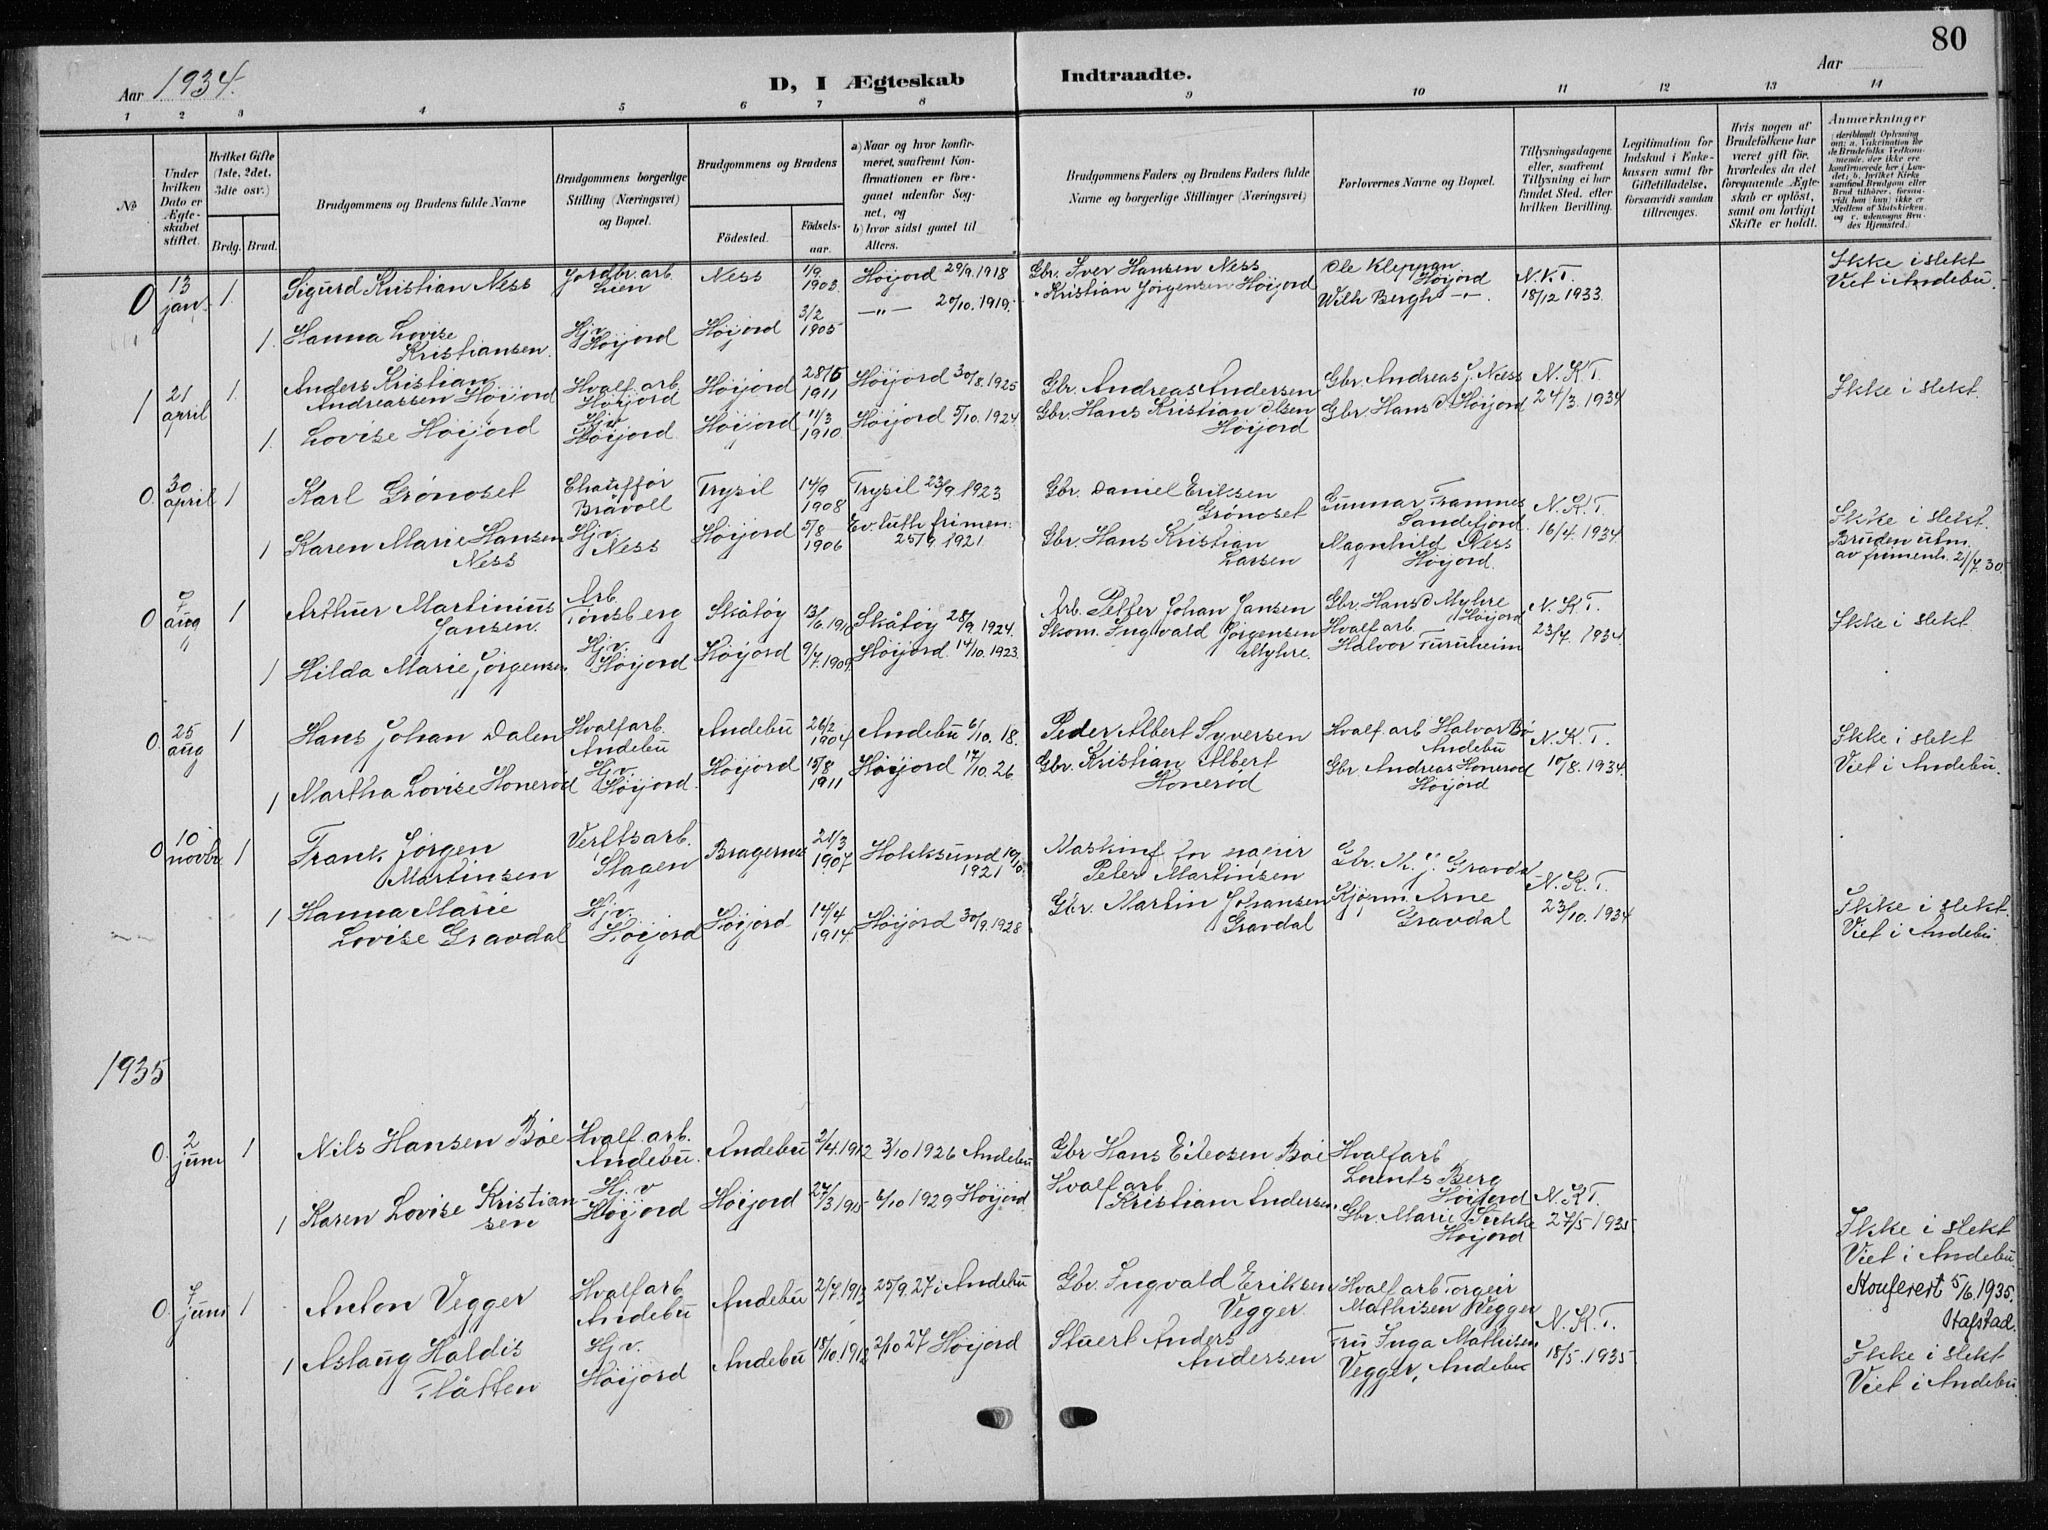 80
Aar 1934.
D, I Ægteskab Indtraadte.
Aar
1 2 3 4 5 6 7 8 9 10 11 12 13 14
No
Under hvilken Dato er Ægteskabet stiftet.
Hvilket Gifte (1ste, 2det, 3die osv.)
Brdg. Brud.
Brudgommens og Brudens fulde Navne
Brudgommens borgerlige Stilling (Næringsvei) og Bopæl.
Brudgommens og Brudens
Födested. Födselsaar.
a) Naar og hvor konfirmeret, saafremt Konfirmationen er foregaaet udenfor Sognet, og
b) hvor sidst gaaet til Alters.
Brudgommens Faders og Brudens Faders fulde Navne og borgerlige Stillinger (Næringsvei)
Forlovernes Navne og Bopæl.
Tillysningsdagene eller, saafremt Tillysning ei har fundet Sted, efter hvilken Bevilling.
Legitimation for Indskud i Enkekassen samt for Giftetilladelse, forsaavidt saadan tiltrenges.
Hvis nogen af Brudefolkene har været gift för, hvorledes da det foregaaende Ægteskab er oplöst, samt om lovligt Skifte er holdt.
Anmærkninger
0 13 jan. 1. Sigurd Kristian Ness Jordbr. arb. Lien Ness 1/9 1903 Höijord 29/9.1918 Gbr. Iver Hansen Ness Ole Kleppan Höijord N.K.T. 18/12 1933. Ikke i slekt Viet i Andebu.
1. Hanna Lovise Kristiansen. Hjv. Höijord Höijord 3/2 1905 —"— 20/10.1919. " Kristian Jörgensen Höijord Wilh Bergh —"—.
1 21 april 1. Anders Kristian Andreassen Höijord Hvalf. arb. Höijord Höijord 28/5 1911 Höijord 30/8.1925 Gbr. Andreas Andersen Gbr. Andreas J. Ness N.K.T. 24/3.1934 Ikke i slekt.
1. Lovise Höijord Hjv. Höijord. Höijord 11/3 1910. Höijord 5/10.1924. Gbr. Hans Kristian Olsen Höijord Gbr. Hans O. Höijord
0. 30 april 1 Karl Grönoset Chauffør Bråvoll Trysil 14/9 1908 Trysil 23/9 1923 Gbr. Daniel Eriksen Grönoset Gunnar Framnes Sandefjord. N.K.T. 16/4.1934 Ikke i slekt.
1 Karen Marie Hansen Ness Hjv. Ness Höijord 5/8 1906 Ev. luth frimen. 25/9 1921 Gbr. Hans Kristian Larsen Magnhild Ness Höijord. Bruden utm. av frimenh. 21/7.30
0 7 aug 1 Arthur Martinius Jansen. Arb. Tönsberg Skåtöy 13/6.1910 Skåtöy 28/9.1924. Arb. Petter Johan Jansen Gbr. Hans O Myhre Höijord N.K.T. 23/7.1934 Ikke i slekt
1 Hilda Marie Jörgensen Hjv. Höijord Höijord 9/7.1909. Höijord. 14/10.1923. Skom. Ingvald Jörgensen Myhre. Hvalf arb. Halvor Furuheim
0. 25 aug 1 Hans Johan Dalen Hvalf arb. Andebu Andebu 26/2 1904 Andebu 6/10.18. Peder Albert Syversen Hvalf. arb Halvor Bö Andebu N.K.T. 10/8.1934. Ikke i slekt Viet i Andebu.
1 Martha Lovise Honeröd Hjv. Höijord. Höijord 15/8 1911 Höijord 17/10.26 Gbr. Kristian Albert Honeröd Gbr. Andreas Honeröd Höijord
0 10 novbr 1 Frank Jörgen Martinsen Verftsarb. Slagen Bragernes 21/3 1907 Hokksund 1921 Peter Martinsen Gbr. M. J. Gravdal N.K.T. 23/10.1934 Ikke i slekt. Viet i Andebu.
1 Hanna Marie Lovise Gravdal Hjv. Höijord Höijord 14/4 1914 Höijord 30/9.1928 Gbr. Martin Johansen Gravdal Kjörm. Arne Gravdal
1935
0. 2 juni 1 Nils Hansen Böe Hvalf. arb. Andebu. Andebu 2/4.1912 3/10 1926 Andebu Gbr Hans Böe Hvalf arb Berg Höijord N.K.T. 27/5 1935. Ikke i slekt Viet i Andebu.
1 Karen Lovise Kristiansen Hjv Höijord Höijord 27/3 1915 6/10 1929 Höijord Hvalf arb. Kristian Andersen Gbr. Höijord
0. 7 juni 1 Anton Vegger Hvalf arb. Andebu Andebu 2/7.1913 25/9.27 i Andebu Gbr. Ingvald Eriksen Vegger Hvalf arb Torgeir Mathisen Vegger N.K.T. 18/5.1935 Konferert 5/6.1935. Hafstad.
1 Aslaug Haldis Flåtten Hjv. Höijord Andebu 18/10.1912 2/10 27 Höijord Stuert Anders Andersen Fru Inga Mathisen Vegger, Andebu Ikke i slekt Viet i Andebu.